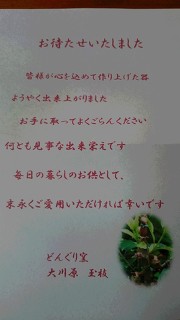 お待たせいたしました
皆様が心を込めて作り上げた器
ようやく出来上がりました
お手に取ってよくごらんください
何とも見事な出来栄えです
毎日の暮らしのお供として、
末永くご愛用いただければ幸いです
どんぐり窯
大川原 玉枝